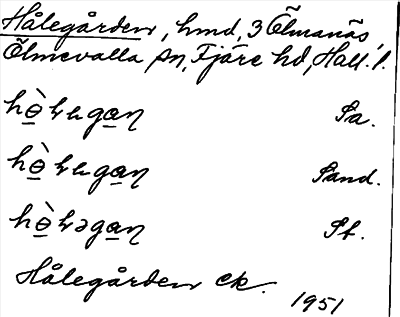 Hålegården, hmd, 3 Ölmanäs,
Ölmevalla sn, Fjäre hd, Hall. l.
hɵ̀ɫagan̥ Sa.
hɵ̀ɫagan̥ Sand.
hɵ̀ɫəgan̥ St.
Hålegården ck.
1951